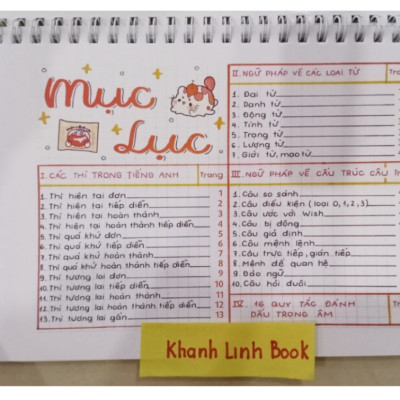 Mục
Lục
I. CÁC THÌ TRONG TIẾNG ANH Trang
1. Thì hiện tại đơn 1
2. Thì hiện tại tiếp diễn 2
3. Thì hiện tại hoàn thành 3
4. Thì hiện tại hoàn thành tiếp diễn 4
5. Thì quá khứ đơn 5
6. Thì quá khứ tiếp diễn 6
7. Thì quá khứ hoàn thành 7
8. Thì quá khứ hoàn thành tiếp diễn 8
9. Thì tương lai đơn 9
10. Thì tương lai tiếp diễn 10
11. Thì tương lai hoàn thành 11
12. Thì tương lai hoàn thành tiếp diễn 12
13. Thì tương lai gần 13
II. NGỮ PHÁP VỀ CÁC LOẠI TỪ
1. Đại từ
2. Danh từ
3. Động từ
4. Tính từ
5. Trạng từ
6. Lượng từ
7. Giới từ, mạo từ
III. NGỮ PHÁP VỀ CẤU TRÚC CÂU
1. Câu so sánh
2. Câu điều kiện (loại 0,1,2,3)
3. Câu ước với Wish
4. Câu bị động
5. Câu giả định
6. Câu mệnh lệnh
7. Câu trực tiếp, gián tiếp
8. Mệnh đề quan hệ
9. Đảo ngữ
10. Câu hỏi đuôi
IV. 16 QUY TẮC ĐÁNH
DẤU TRỌNG ÂM
Khanh Linh Book